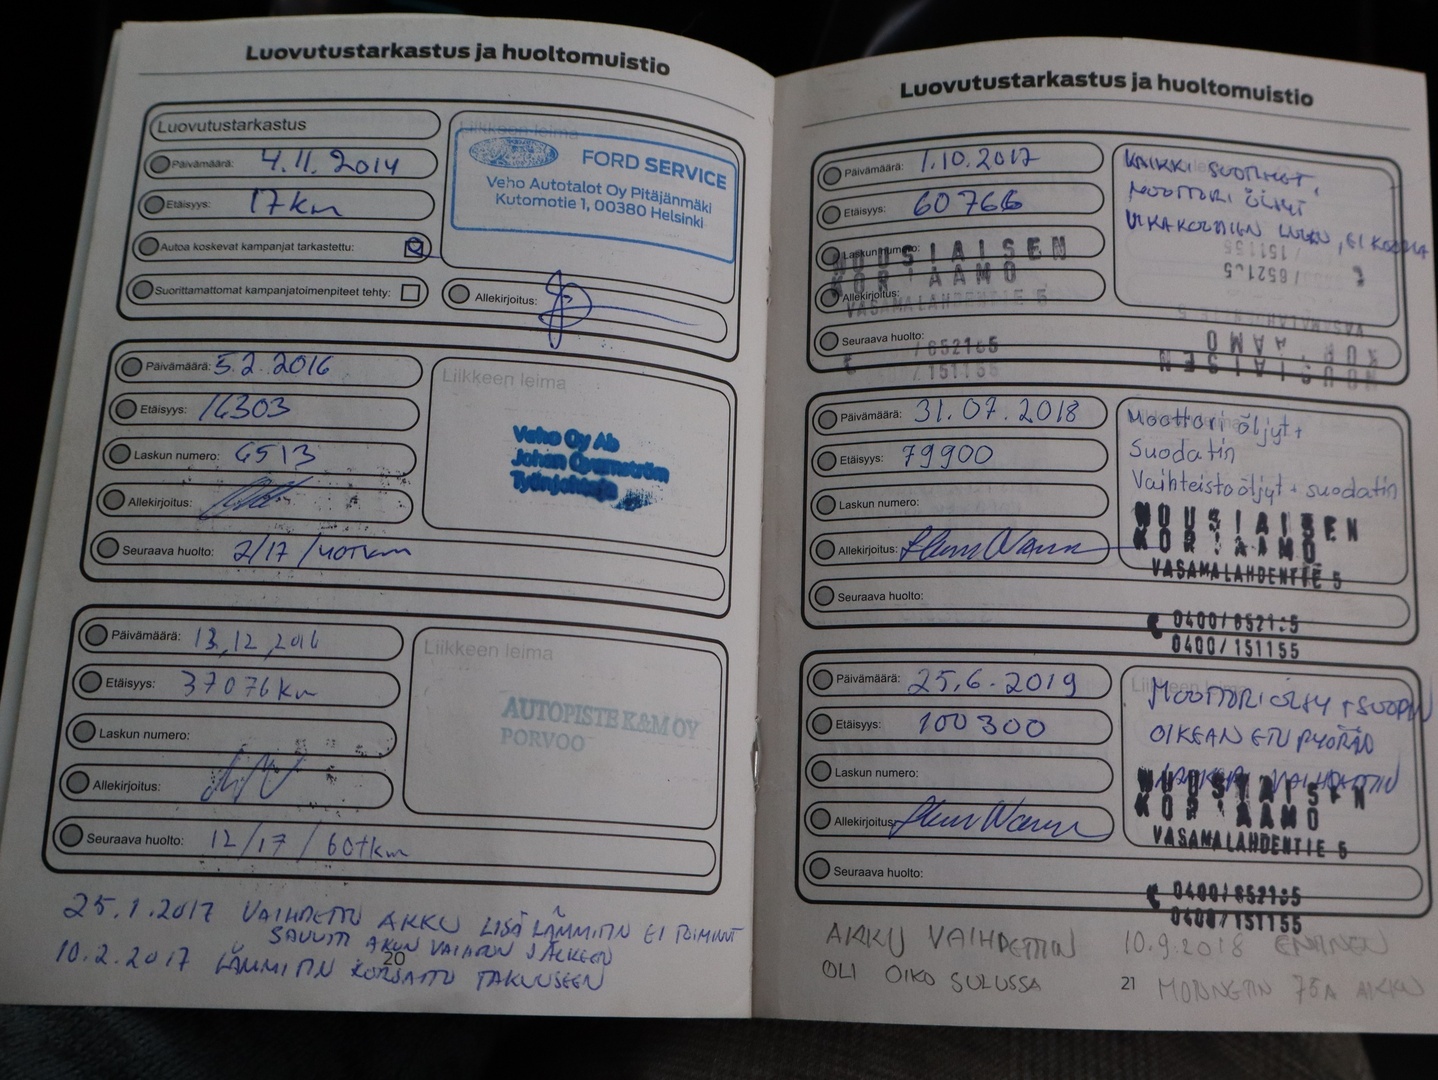 Luovutustarkastus ja huoltomuistio
Luovutustarkastus
Päivämäärä: 4.11.2014
Etäisyys: 17km
Autoa koskevat kampanjat tarkastettu:
Suorittamattomat kampanjatoimenpiteet tehty:
Liikkeen leima
FORD SERVICE
Veho Autotalot Oy Pitäjänmäki
Kutomotie 1, 00380 Helsinki
Allekirjoitus:
Päivämäärä: 5.2.2016
Etäisyys: 16303
Laskun numero: 6513
Allekirjoitus:
Seuraava huolto: 2/17 /40Tkm
Liikkeen leima
Veho Oy Ab
Johan
Työnjohtaja
Päivämäärä: 13.12.2016
Etäisyys: 37076km
Laskun numero:
Allekirjoitus:
Seuraava huolto: 12/17 / 60tkm
Liikkeen leima
AUTOPISTE K&M OY
PORVOO
25.1.2017 VAIHDETTU AKKU LISÄLÄMMITIN EI TOIMINUT
SAVUTTI AKUN VAIHDON JÄLKEEN
10.2.2017 LÄMMITIN KORJATTU TAKUUSEEN
20
Luovutustarkastus ja huoltomuistio
Päivämäärä: 1.10.2017
Etäisyys: 60766
Laskun numero:
Allekirjoitus:
Seuraava huolto:
NOUSIAISEN
KORJAAMO
VASAMALAHDENTIE 5
/652165
/151155
KAIKKI SUOTIMET,
MOOTTORI ÖLJYT
VIKAKOODIEN LUKU, EI KOODIA
Päivämäärä: 31.07.2018
Etäisyys: 79900
Laskun numero:
Allekirjoitus:
Seuraava huolto:
Moottori öljyt +
Suodatin
Vaihteistoöljyt + suodatin
NOUSIAISEN
KORJAAMO
VASAMALAHDENTIE 5
0400/652165
0400/151155
Päivämäärä: 25.6.2019
Etäisyys: 100300
Laskun numero:
Allekirjoitus:
Seuraava huolto:
MOOTTORIÖLJY + SUODATIN
OIKEAN ETUPYÖRÄN
LAAKERI VAIHDETTIIN
NOUSIAISEN
KORJAAMO
VASAMALAHDENTIE 5
0400/652165
0400/151155
AKKU VAIHDETTIIN 10.9.2018 ENTINEN
OLI OIKOSULUSSA
21
75A AKKU